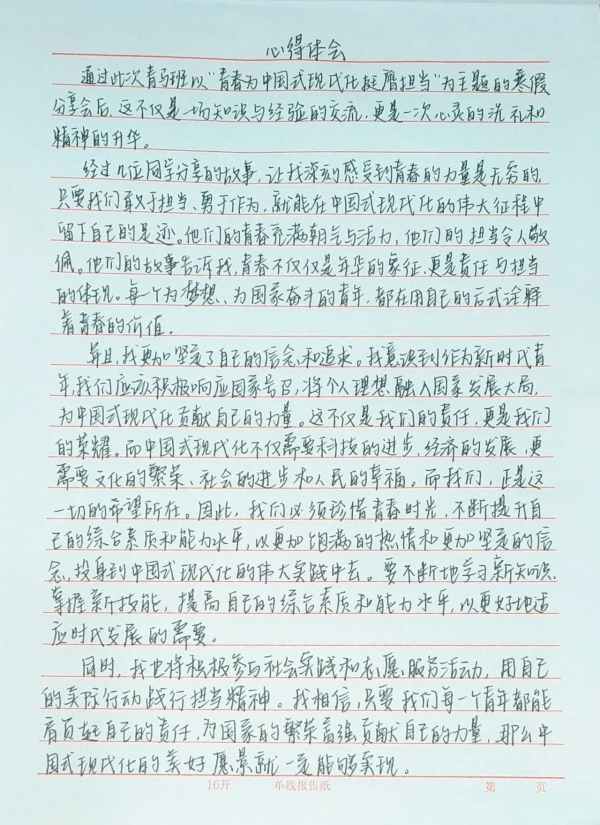 心得体会
通过此次青马班以“青春为中国式现代化挺膺担当”为主题的寒假
分享会后，这不仅是一场知识与经验的交流，更是一次心灵的洗礼和
精神的升华。
经过几位同学分享的故事，让我深刻感受到青春的力量是无穷的，
只要我们敢于担当、勇于作为，就能在中国式现代化的伟大征程中
留下自己的足迹。他们的青春充满朝气与活力，他们的担当令人敬
佩。他们的故事告诉我，青春不仅仅是年华的象征，更是责任与担当
的体现。每一个为梦想、为国家奋斗的青年，都在用自己的方式诠释
着青春的价值。
并且，我更加坚定了自己的信念和追求。我意识到作为新时代青
年，我们应该积极响应国家号召，将个人理想融入国家发展大局，
为中国式现代化贡献自己的力量。这不仅是我们的责任，更是我们
的荣耀。而中国式现代化不仅需要科技的进步、经济的发展，更
需要文化的繁荣、社会的进步和人民的幸福。而我们，正是这
一切的希望所在。因此，我们必须珍惜青春时光，不断提升自
己的综合素质和能力水平，以更加饱满的热情和更加坚定的信
念，投身到中国式现代化的伟大实践中去。要不断地学习新知识，
掌握新技能，提高自己的综合素质和能力水平，以更好地适
应时代发展的需要。
同时，我也将积极参与社会实践和志愿服务活动，用自己
的实际行动践行担当精神。我相信，只要我们每一个青年都能
肩负起自己的责任，为国家的繁荣富强贡献自己的力量，那么中
国式现代化的美好愿景就一定能够实现。
16开 单线报告纸 第 页